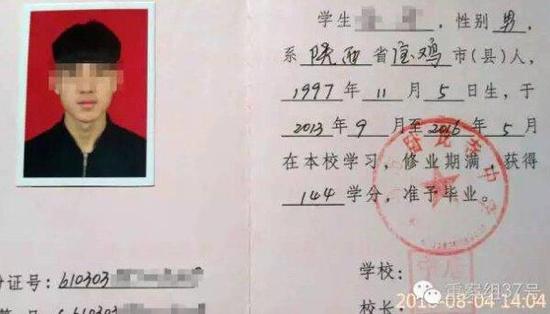 学生 ，性别 男，
系 陕西 省 宝鸡 市(县)人，
1997 年 11 月 5 日生，于
2013 年 9 月至 2016 年 5 月
在本校学习，修业期满，获得
144 学分，准予毕业。
份证号：610303
号：610303
学校：
校长：
重案组37号
08-04 14:04